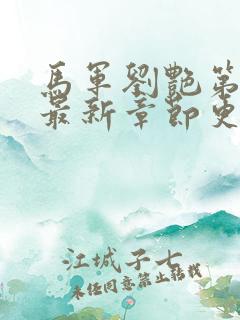 馬軍劉艷第
最新章節更
江城子七
未經同意禁止轉載